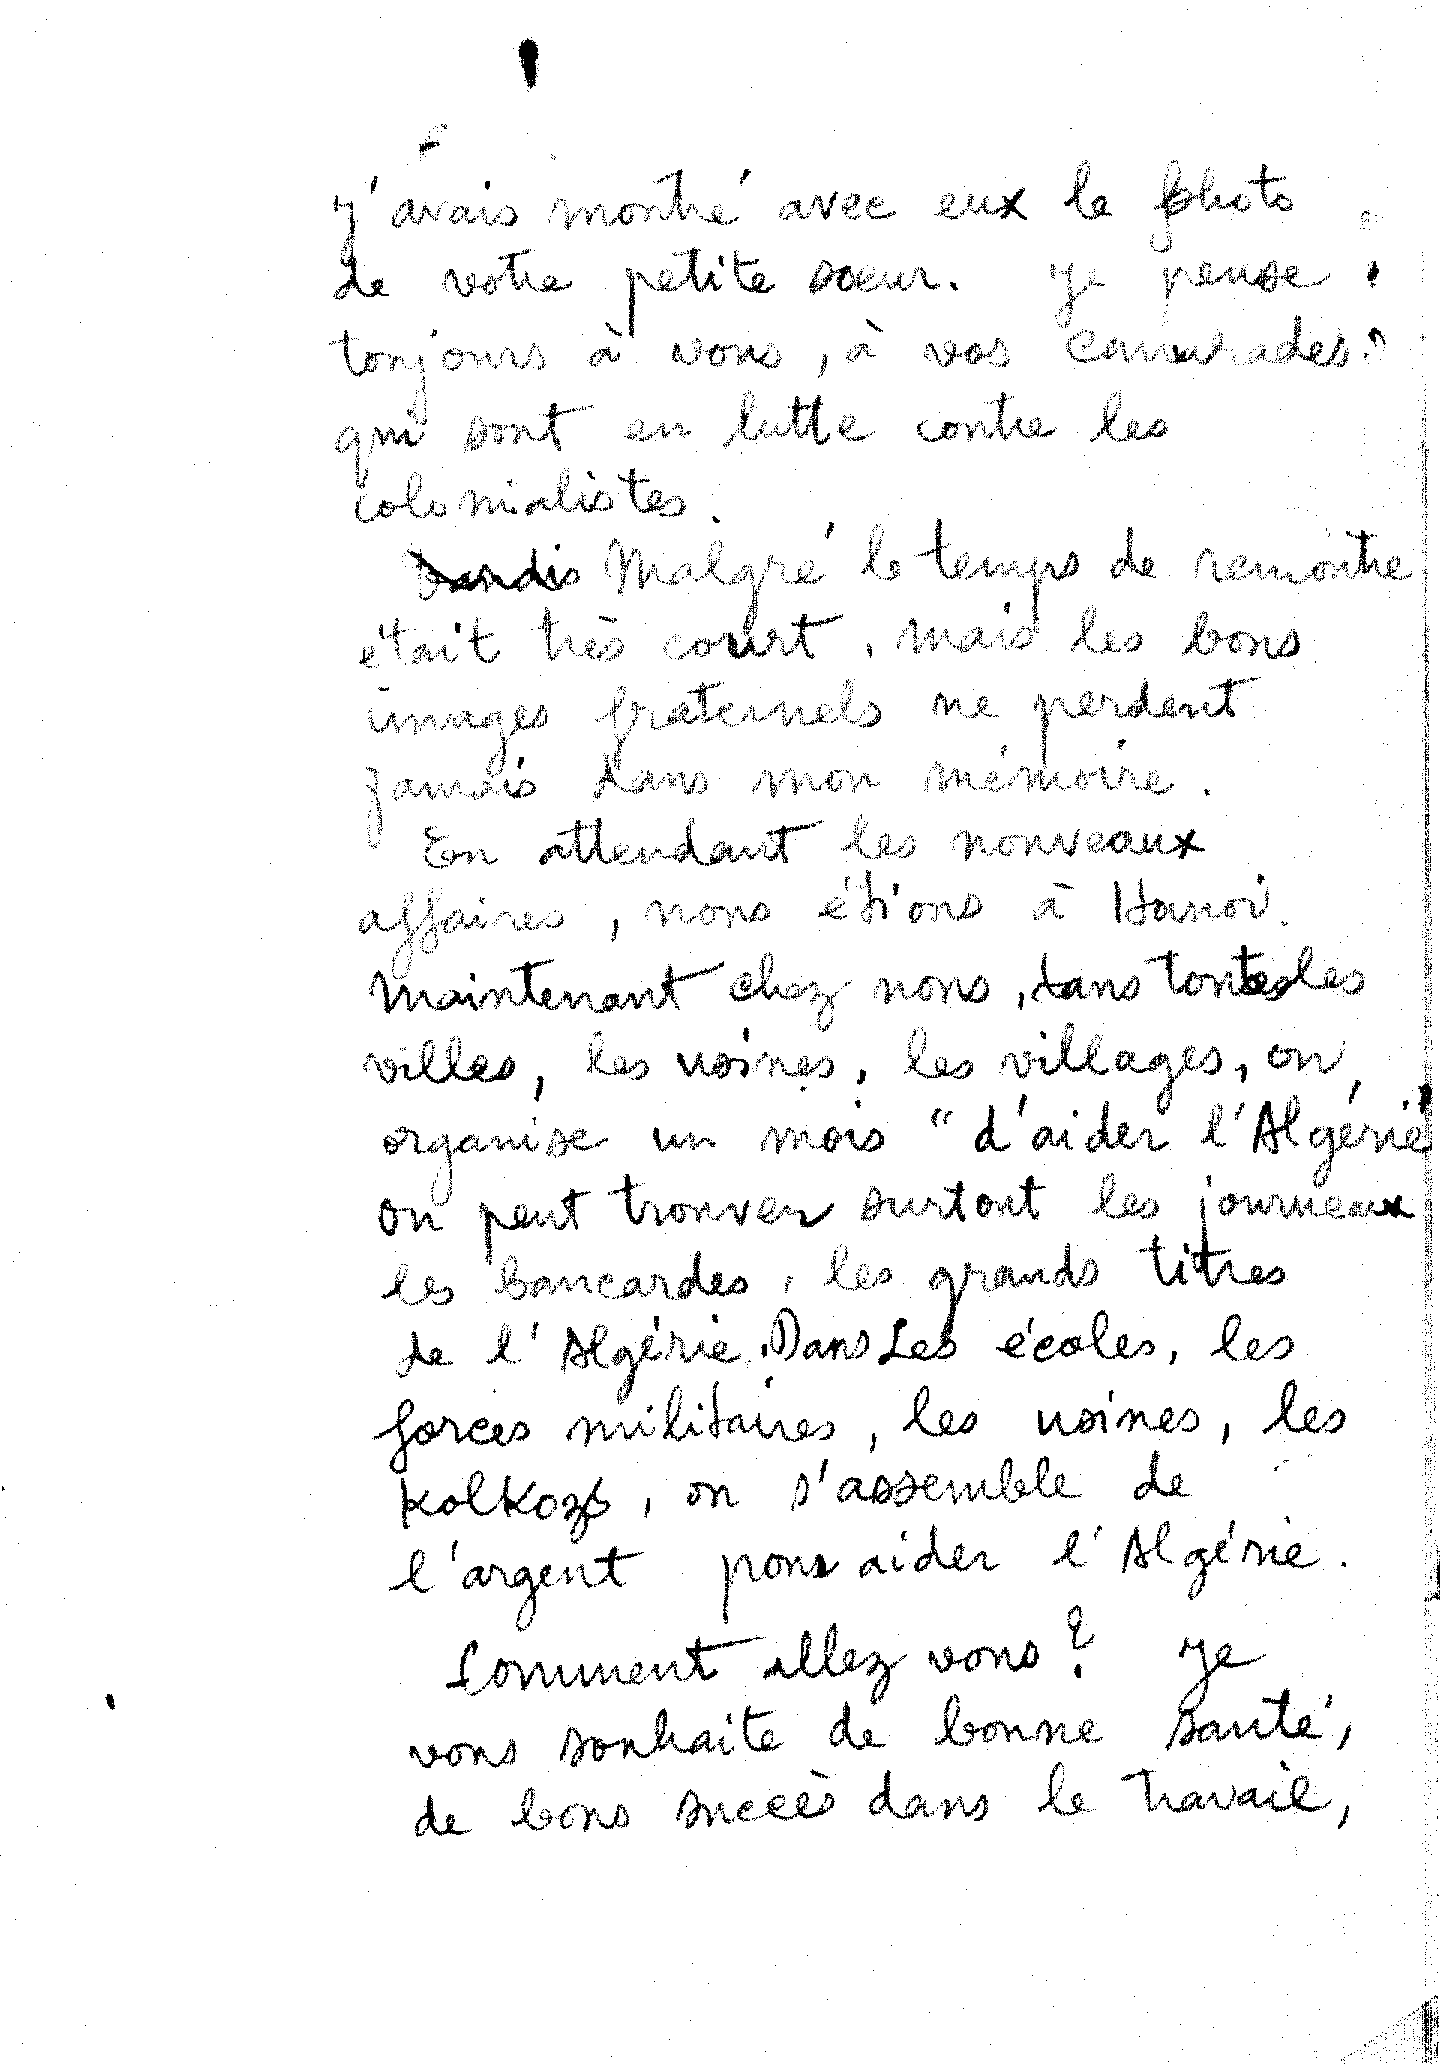 J'avais montré avec eux le photo
de votre petite sœur. Je pense
toujours à vous, à vos camarades
qui sont en lutte contre les
colonialistes.
Malgré le temps de remontre
était très court, mais les bons
images fraternels ne perdent
jamais dans mon mémoire.
En attendant les nouveaux
affaires, nous étions à Hanoi.
Maintenant chez nous, dans toutes les
villes, les usines, les villages, on
organise un mois "d'aider l'Algérie
on peut trouver surtout les journeaux
les bancardes, les grands titres
de l'Algérie. Dans Les écoles, les
forces militaires, les usines, les
Kolkozs, on s'assemble de
l'argent pour aider l'Algérie.
Comment allez vous? Je
vous souhaite de bonne santé,
de bons succès dans le travail,